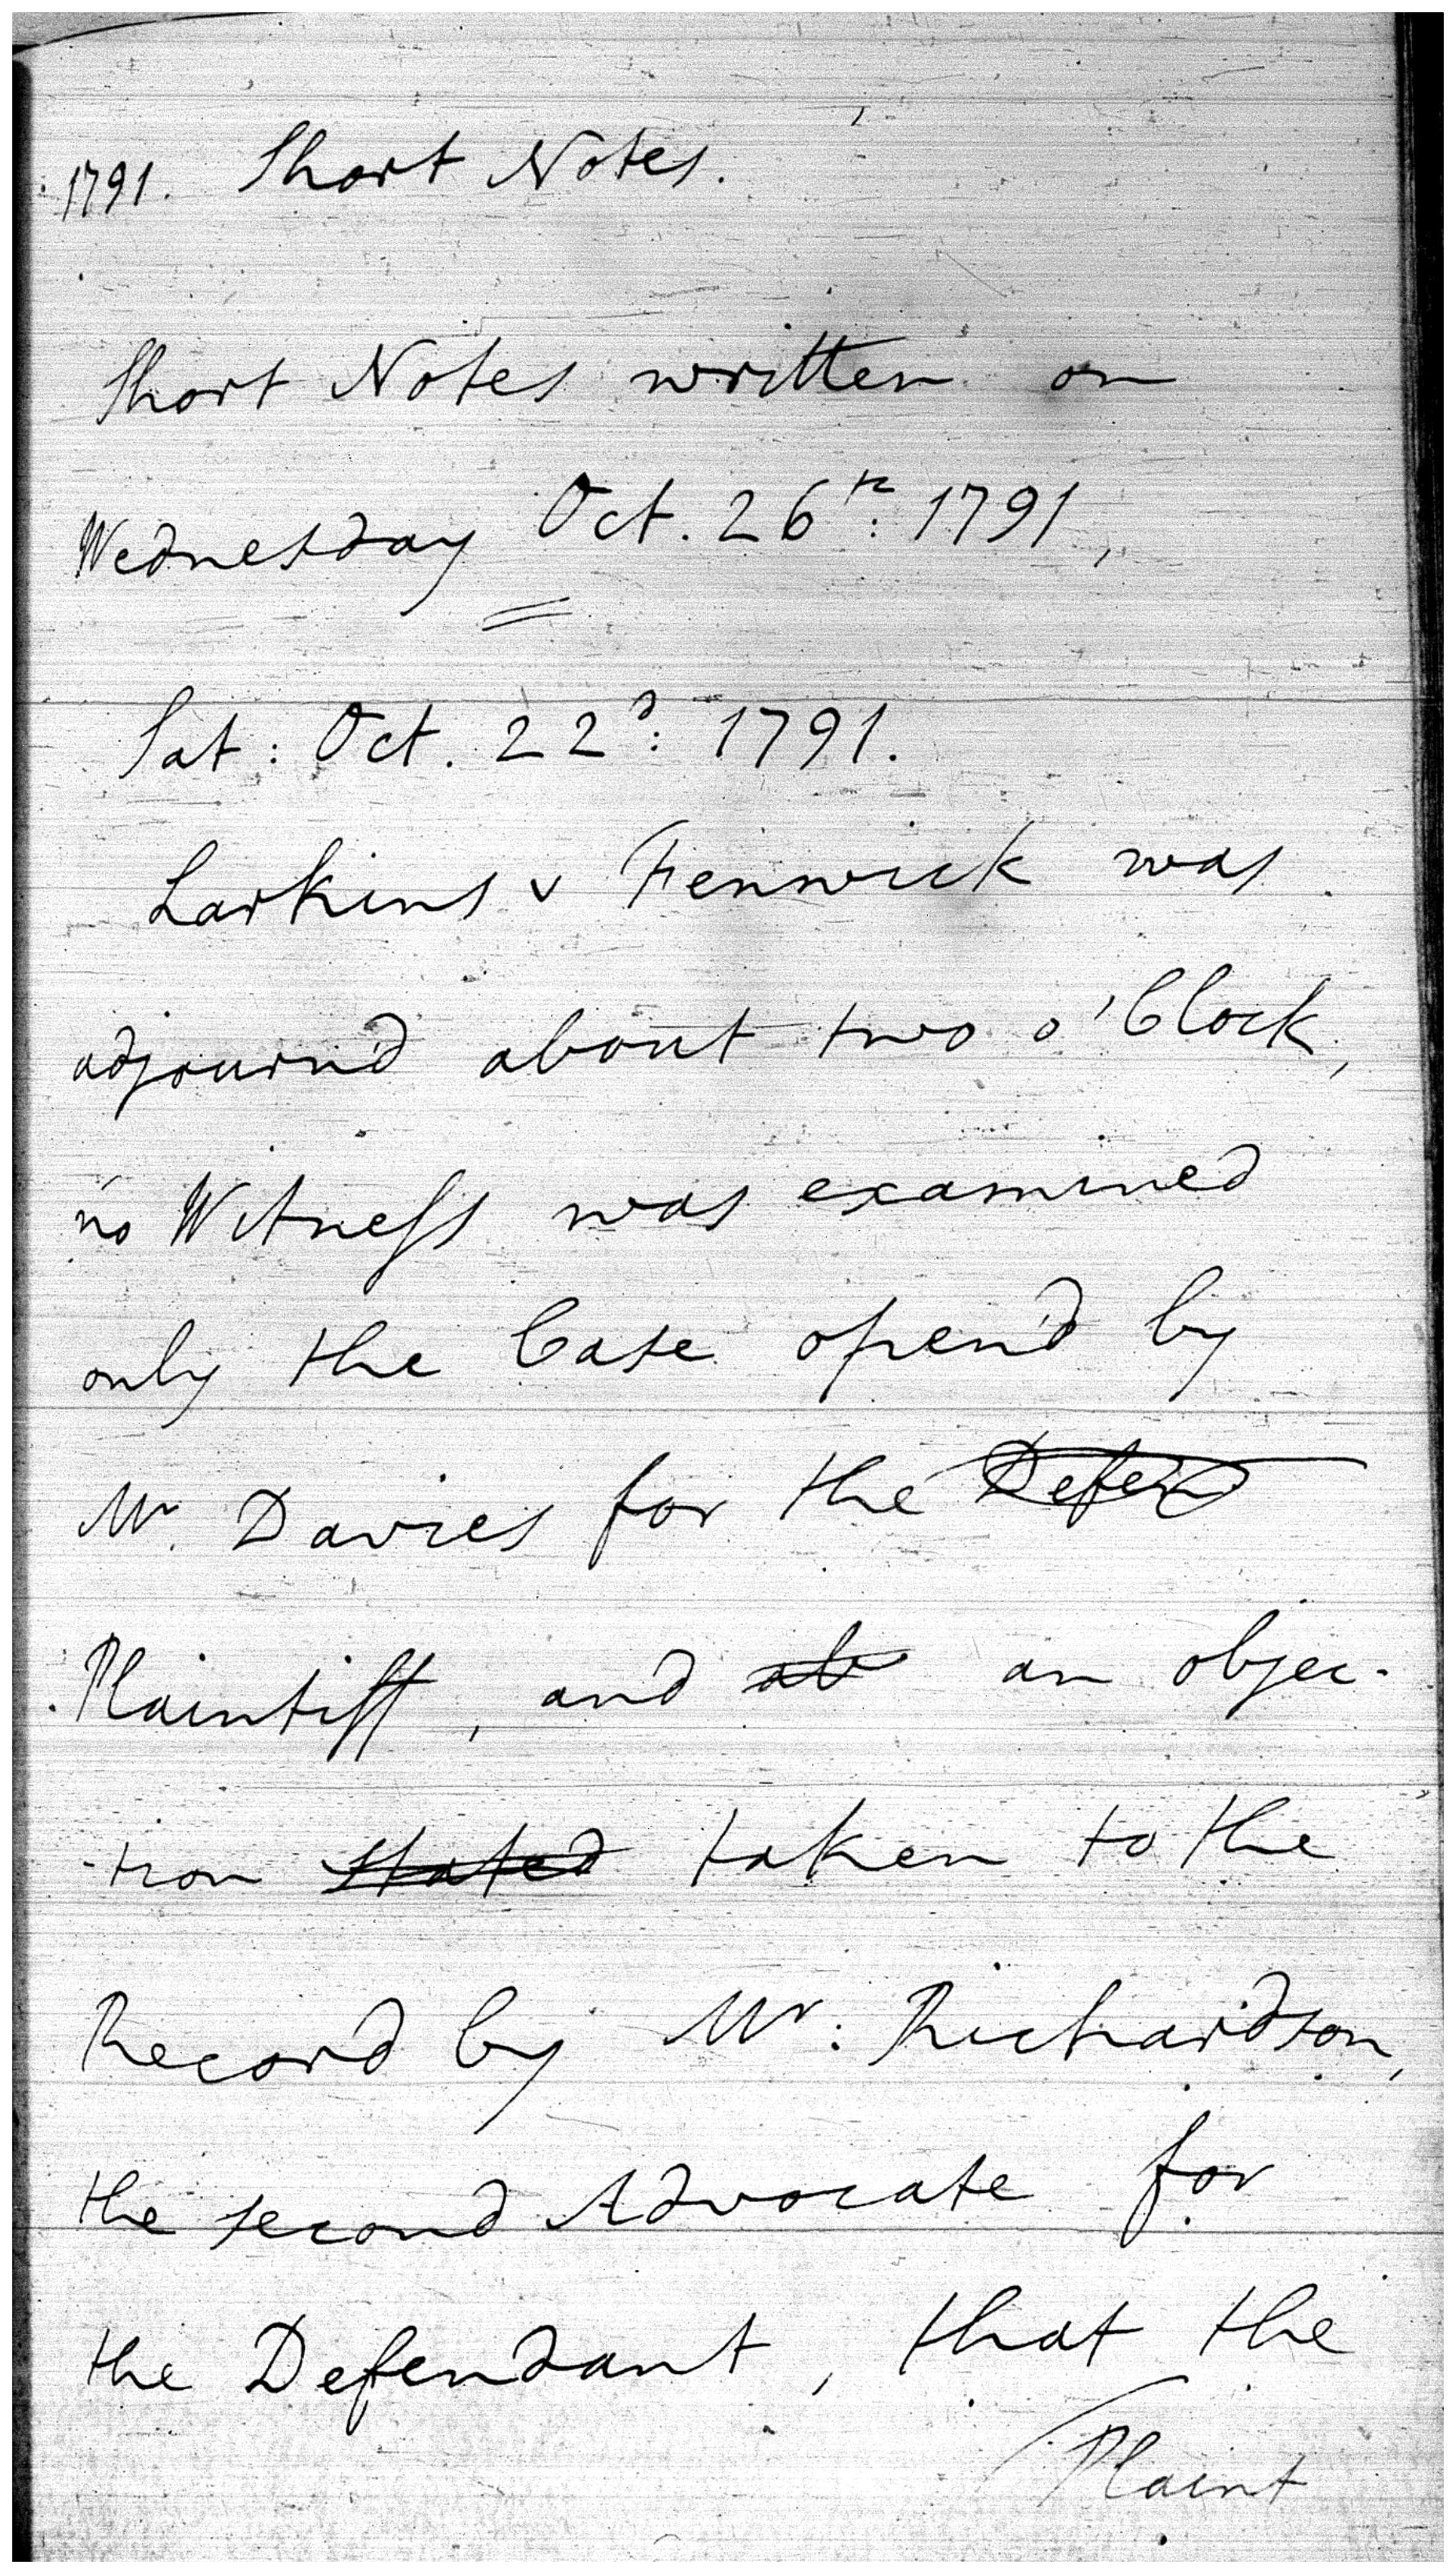 1791. Short Notes.
Short Notes written on
Wednesday Oct. 26th: 1791,
Sat: Oct. 22d: 1791.
Larkins v Fenwick was
adjourn'd about two o'Clock,
no Witness was examined
only the Case open'd by
Mr. Davies for the Defend
Plaintiff, and ab an objec-
-tion stated taken to the
Record by Mr: Richardson,
the second Advocate for
the Defendant, that the
Plaint